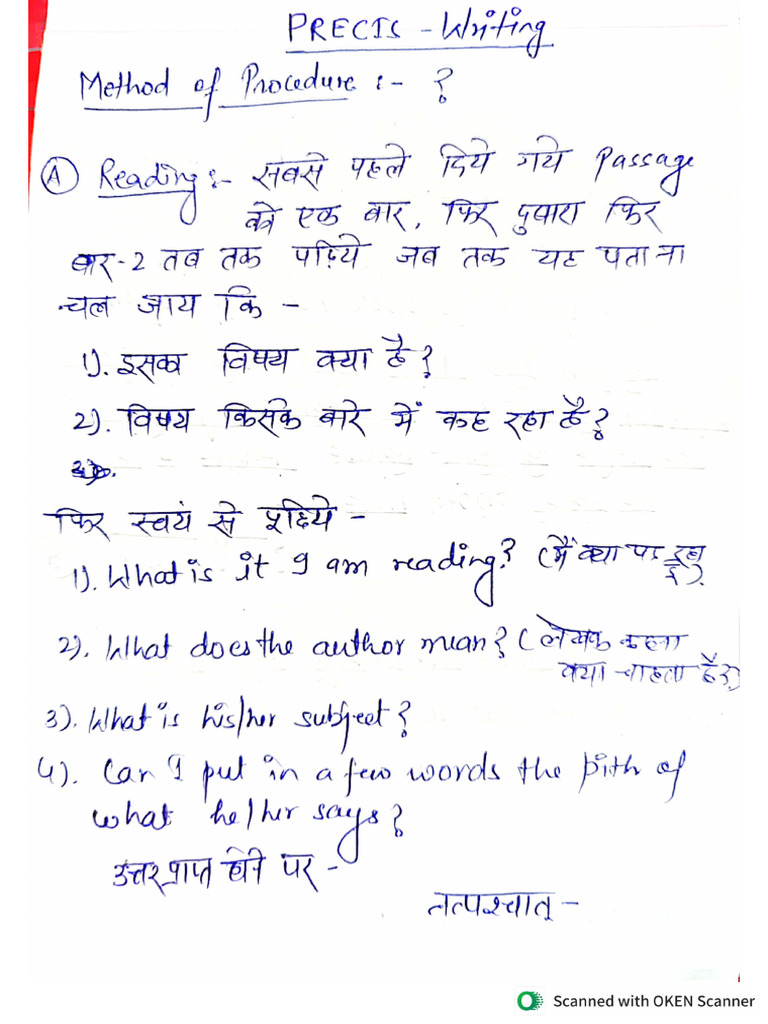 PRECIS - Writing
Method of Procedure :- ?
(A) Reading :- सबसे पहले दिये गये Passage
को एक बार, फिर दुबारा फिर
बार-2 तब तक पढ़िये जब तक यह पता ना
चल जाय कि -
1). इसका विषय क्या है?
2). विषय किसके बारे में कह रहा है?
फिर स्वयं से पूछिये -
1). What is it I am reading? (मैं क्या पढ़ रहा
हूँ).
2). What does the author mean? (लेखक कहना
क्या चाहता है?)
3). What is his/her subject?
4). Can I put in a few words the pith of
what he/her says?
उत्तर प्राप्त होने पर -
तत्पश्चात् -
Scanned with OKEN Scanner